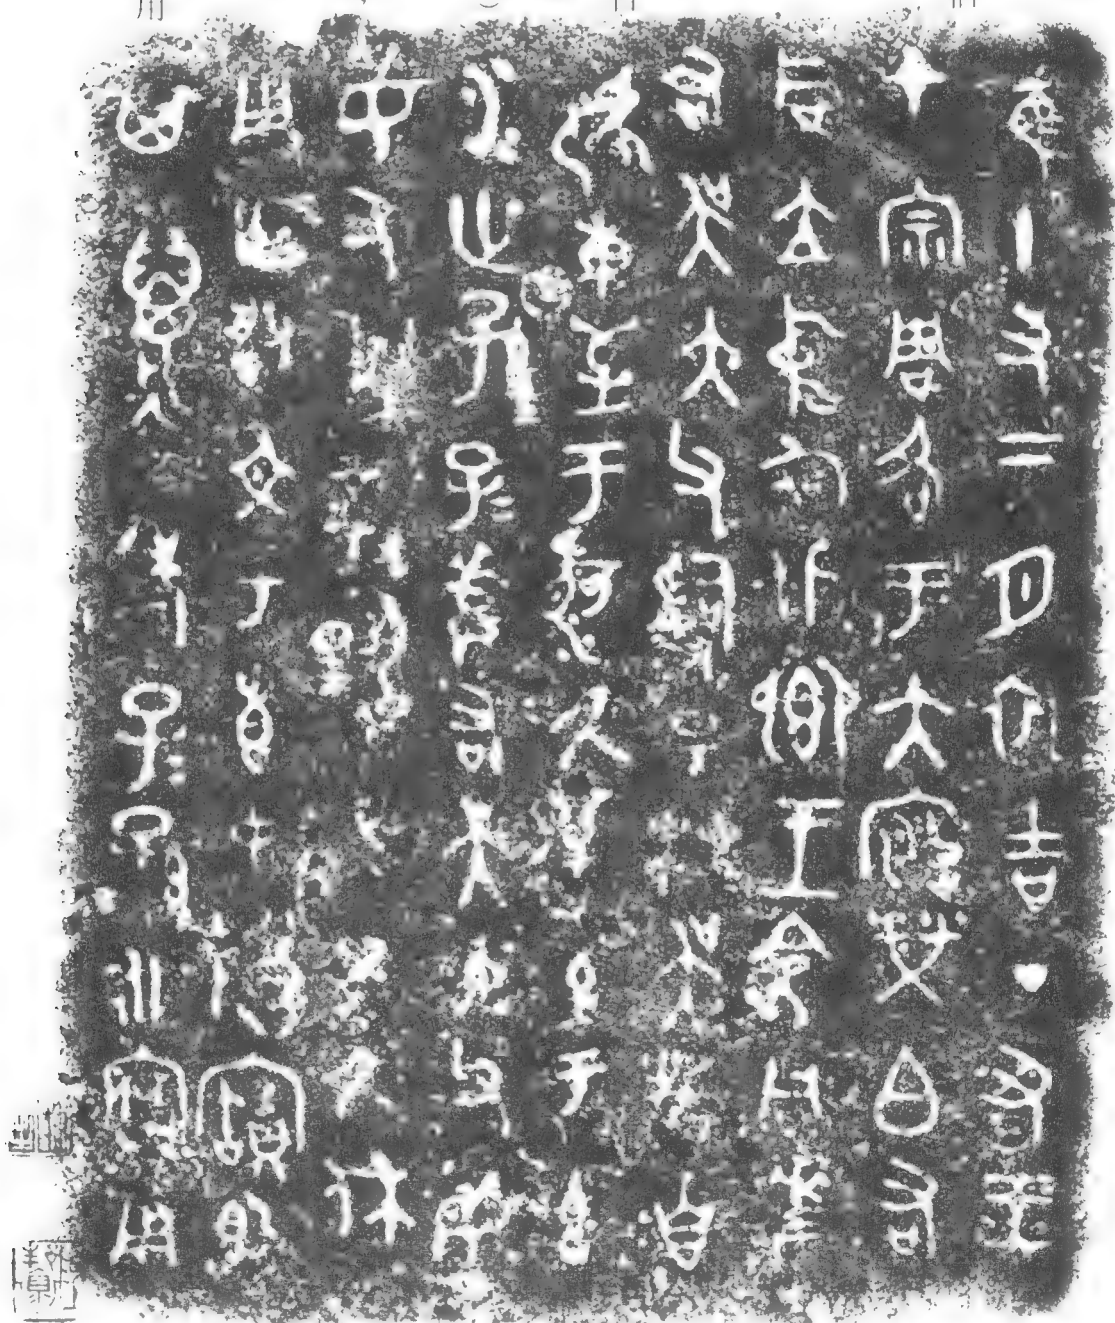 隹十又二月初吉丁丑王
才宗周各于大廟𤇾白右
同立中廷北鄉王命同左
右吳大父司昜林吳牧自
淲東至于河厥逆至于玄
水世孫孫子子左右吳大父
母女又閑對揚天子厥休
用乍朕文考惠中尊寶
簋其萬年子子孫孫永寶用